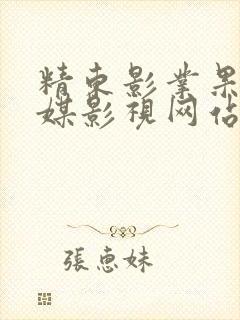 精东影业果
媒影視网佔
張惠妹